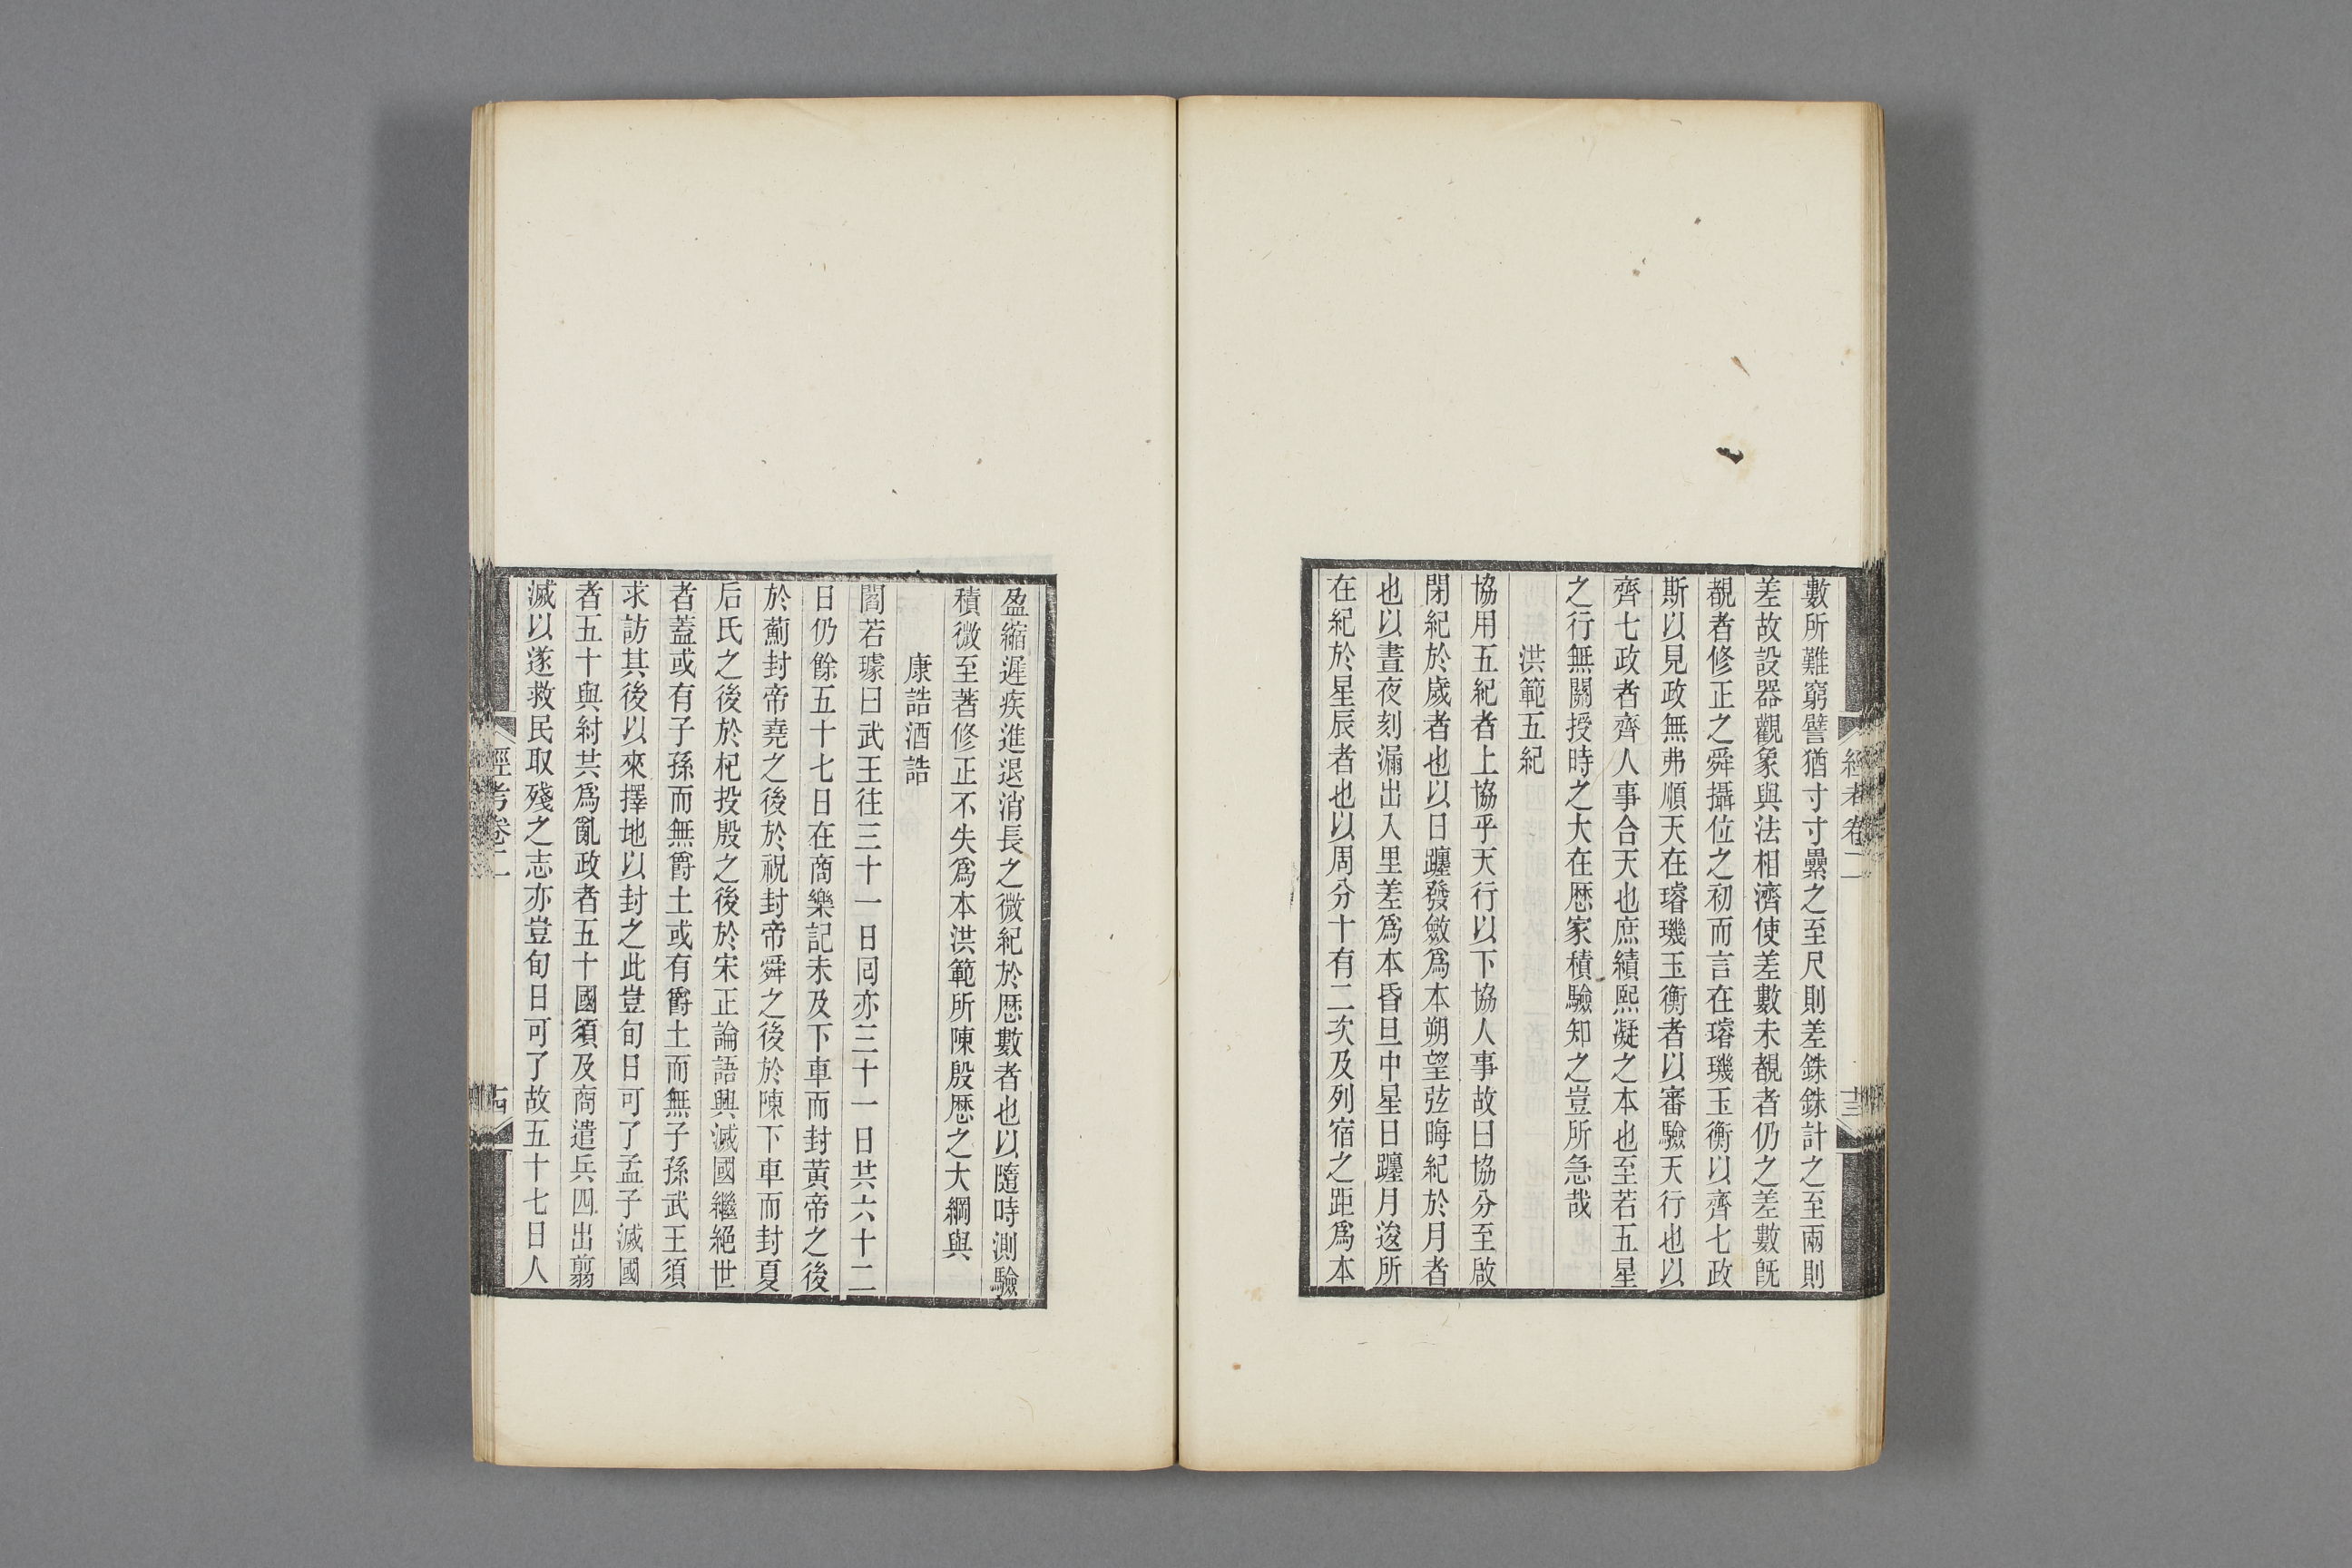 經考卷二
十三
數所難窮譬猶寸寸纍之至尺則差銖銖計之至兩則
差故設器觀象與法相濟使差數未覩者仍之差數旣
覩者修正之舜攝位之初而言在璿璣玉衡以齊七政
斯以見政無弗順天在璿璣玉衡者以審驗天行也以
齊七政者齊人事合天也庶績熙凝之本也至若五星
之行無關授時之大在歷家積驗知之豈所急哉
洪範五紀
協用五紀者上協乎天行以下協人事故曰協分至啟
閉紀於歲者也以日躔發斂爲本朔望弦晦紀於月者
也以晝夜刻漏出入里差爲本昏旦中星日躔月逡所
在紀於星辰者也以周分十有二次及列宿之距爲本
盈縮遲疾進退消長之微紀於歷數者也以隨時測驗
積微至著修正不失爲本洪範所陳殷歷之大綱與
康誥酒誥
閻若璩曰武王往三十一日囘亦三十一日共六十二
日仍餘五十七日在商樂記未及下車而封黃帝之後
於薊封帝堯之後於祝封帝舜之後於陳下車而封夏
后氏之後於杞投殷之後於宋正論語興滅國繼絕世
者蓋或有子孫而無爵土或有爵土而無子孫武王須
求訪其後以來擇地以封之此豈旬日可了孟子滅國
者五十與紂共爲亂政者五十國須及商遣兵四出翦
滅以遂救民取殘之志亦豈旬日可了故五十七日人
經考卷二
十四